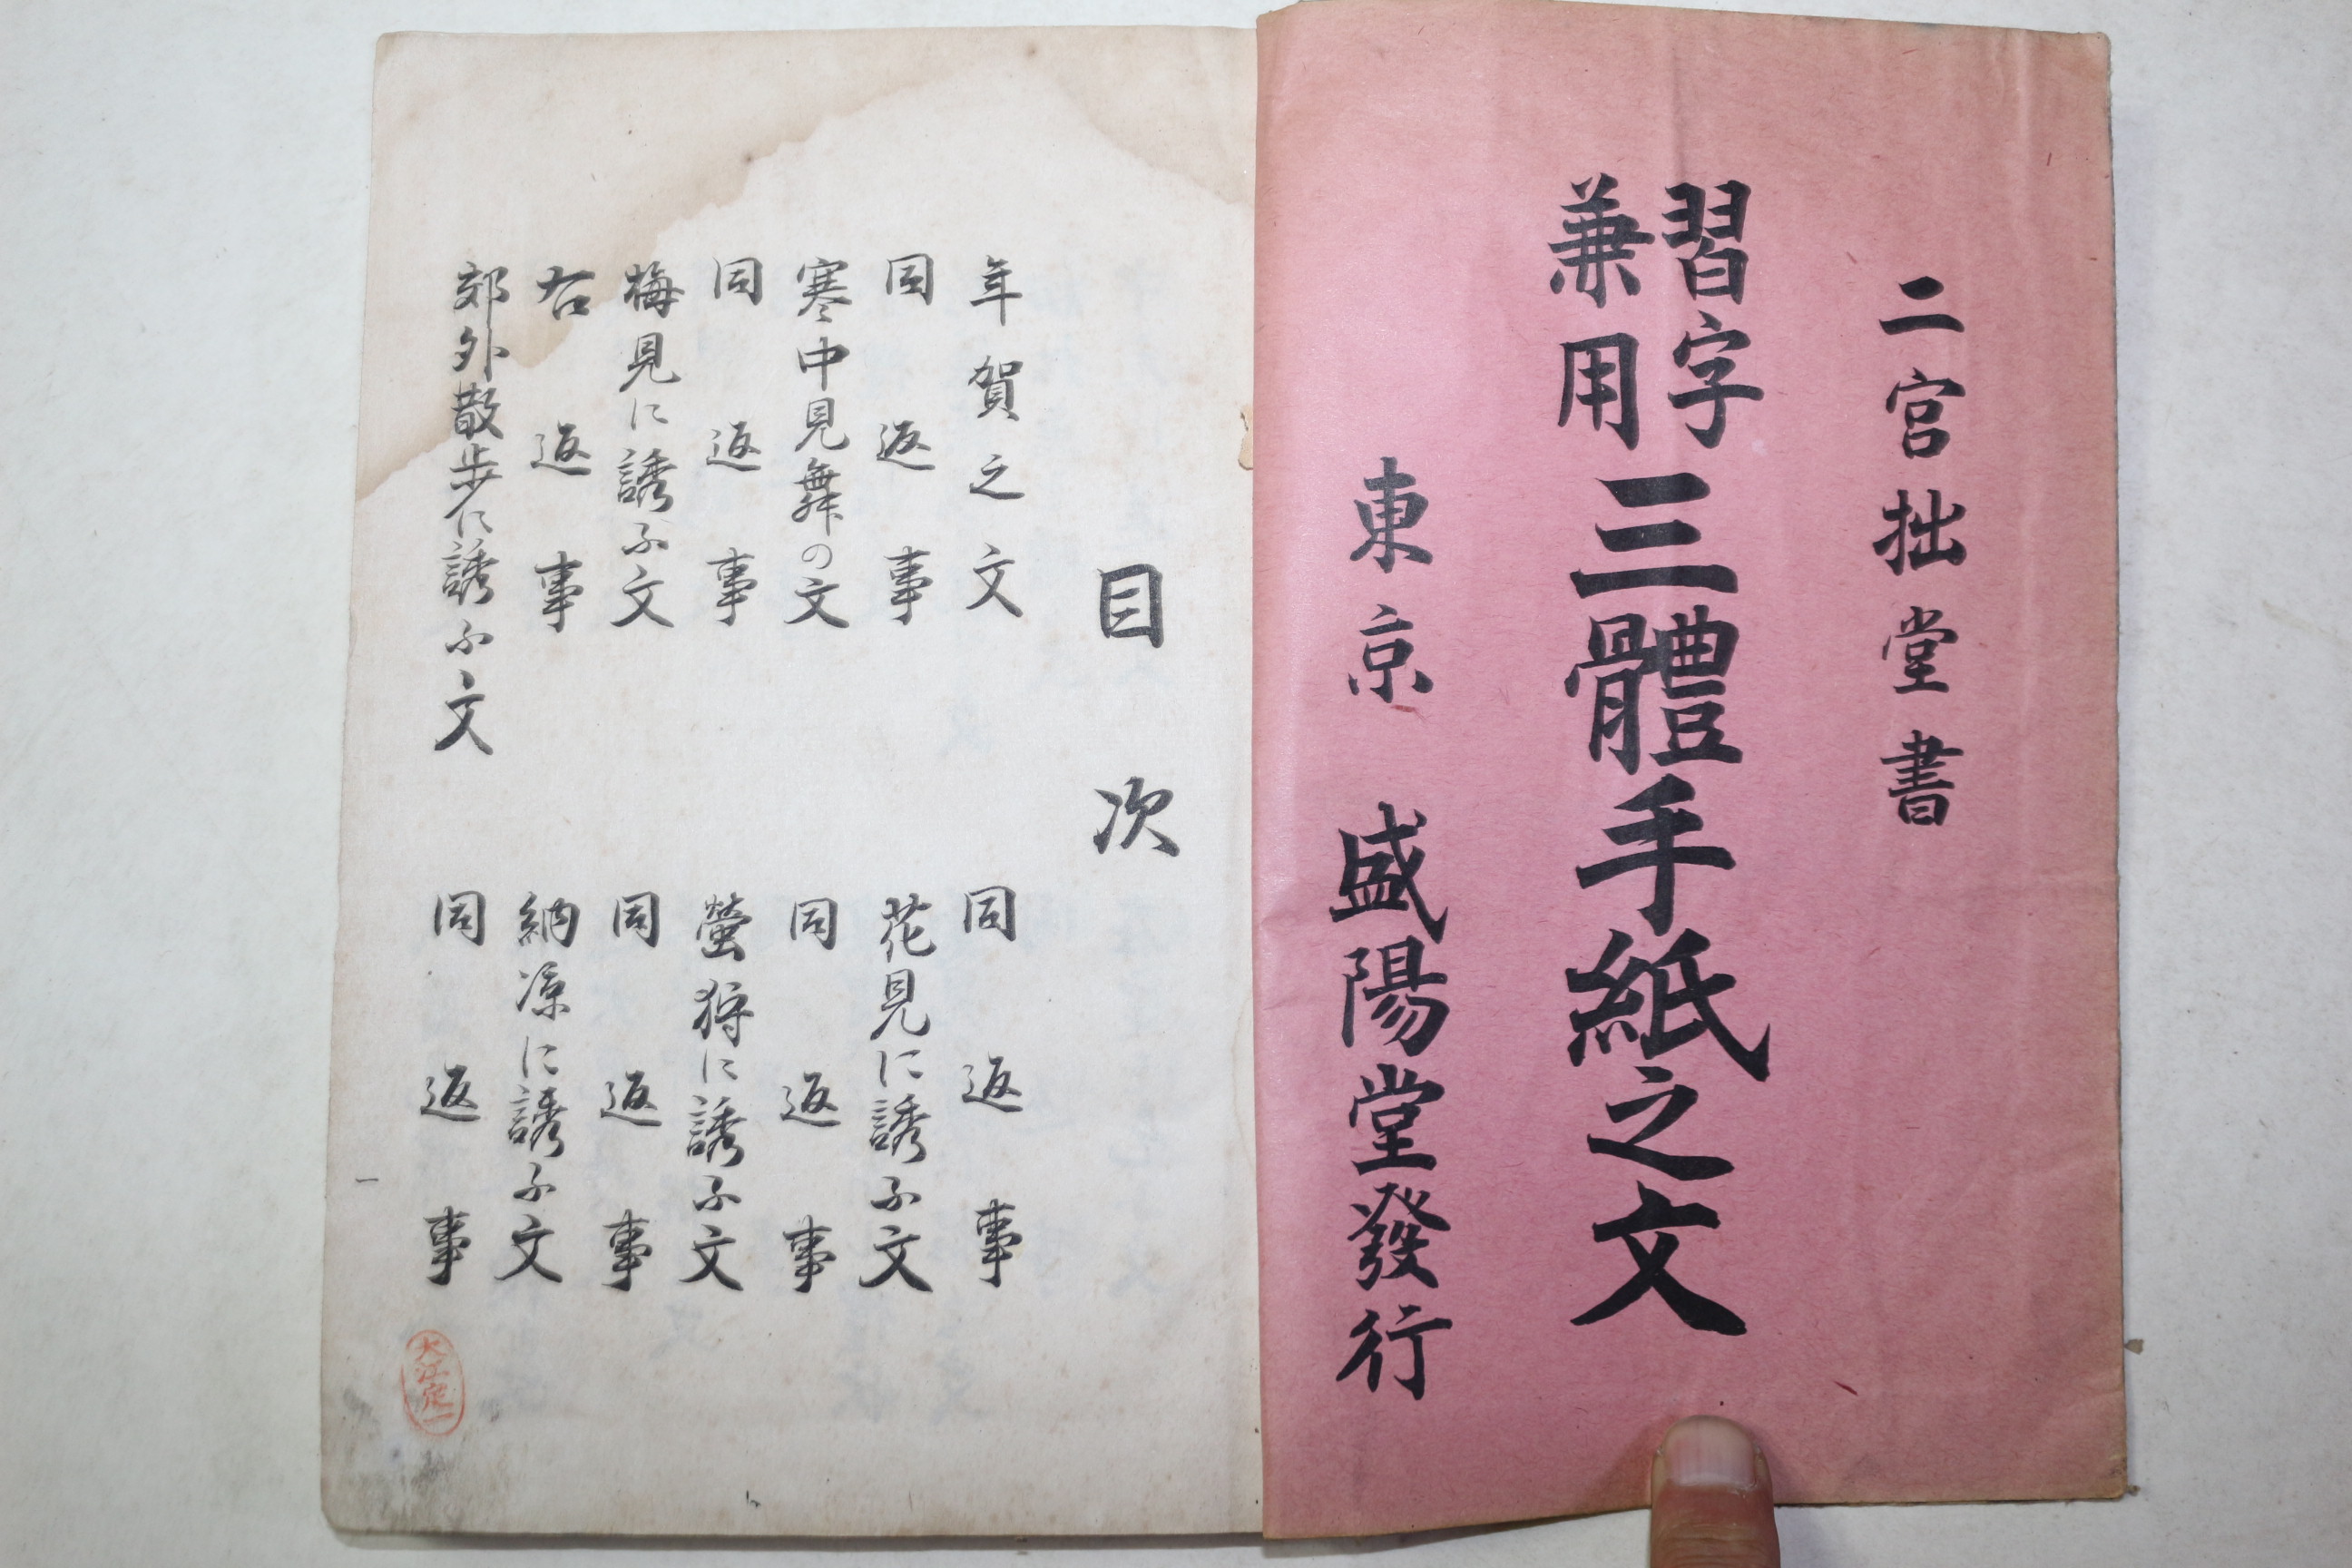 二宮拙堂書
習字
兼用
三體手紙之文
東京 盛陽堂發行
目次
年賀之文
同返事
寒中見舞の文
同返事
梅見に誘ふ文
右返事
郊外散歩に誘ふ文
同返事
花見に誘ふ文
同返事
螢狩に誘ふ文
同返事
納涼に誘ふ文
同返事
一
大江定一